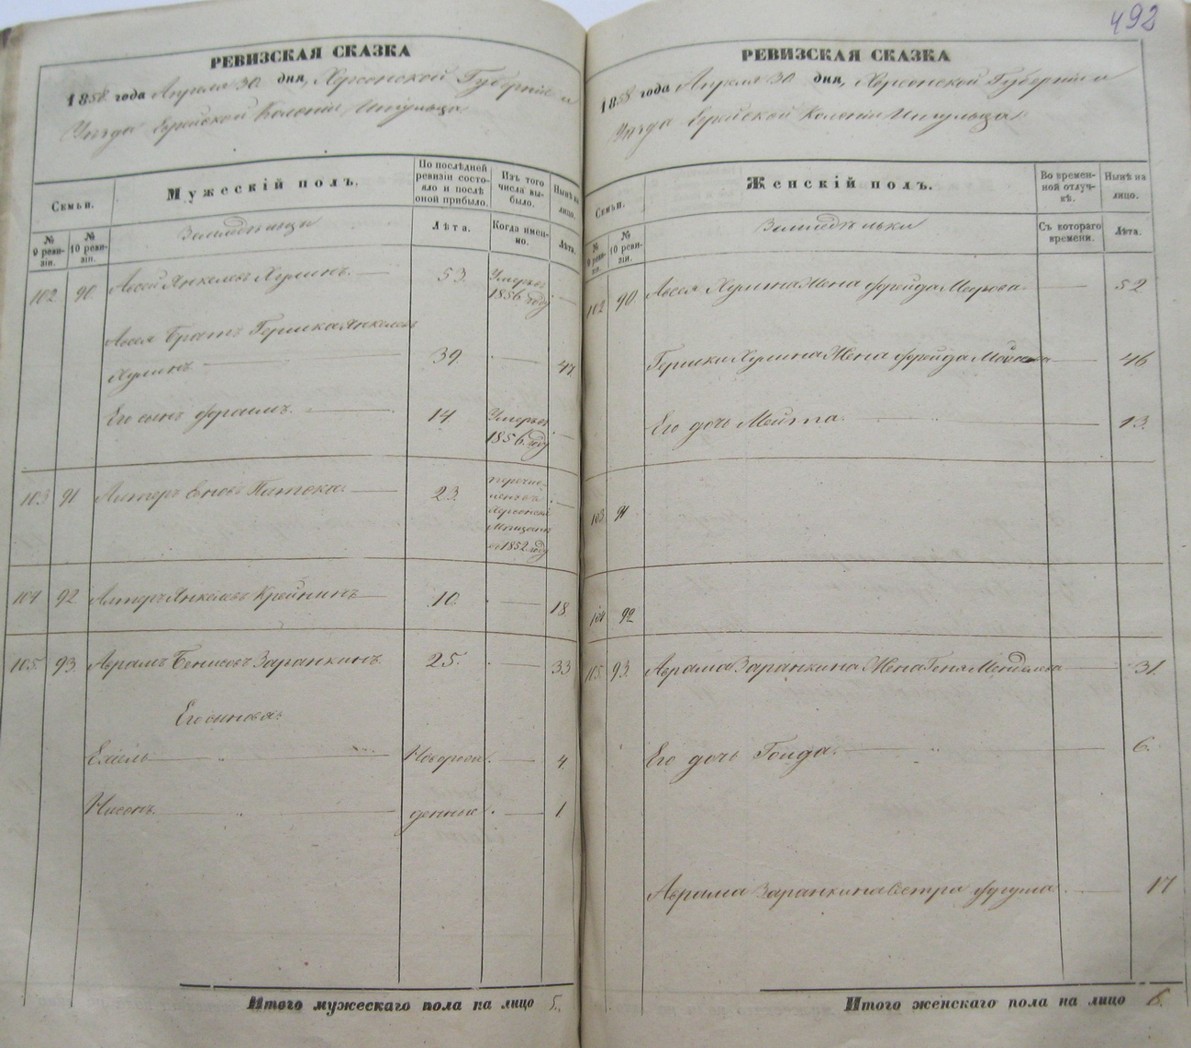 492
РЕВИЗСКАЯ СКАЗКА
1858 года Апреля 30 дня, Херсонской Губерніи и
Уѣзда Еврейской Колоніи Ингульца
Семьи.
Мужескій полъ.
По послѣдней ревизіи состояло и послѣ оной прибыло.
Изъ того числа выбыло.
Нынѣ на лицо.
№ 9 ревизіи.
№ 10 ревизіи.
Лѣта.
Когда именно.
Лѣта.
102 90. Янкелевъ Хуринъ. 53. Умеръ въ 1856 году
Братъ Гершка Янкелевъ
Хуринъ 39. 47.
Его сынъ Фроимъ. 14. Умеръ въ 1856 году
103 91 Патека. 23. 1852 году
104 92 Янкелевъ Крейнинъ 10. 18
105. 93. Абрамъ Заранкинъ. 25. 33
Его сыновья:
Новорож 4
Нисонъ. денные 1
Итого мужескаго пола на лицо 5.
РЕВИЗСКАЯ СКАЗКА
1858 года Апреля 30 дня, Херсонской Губерніи и
Уѣзда Еврейской Колоніи Ингульца
Семьи.
Женскій полъ.
Во временной отлучкѣ.
Нынѣ на лицо.
№ 9 ревизіи.
№ 10 ревизіи.
Съ котораго времени.
Лѣта.
102 90. Хурина Жена Фрейда Меерова 52
Гершки Хурина Жена Фрейда 46
Его дочь 13.
103. 91
104 92
105. 93. Абрама Заранкина Жена Геня Менделева 31.
Его дочь Голда. 6.
Абрама Заранкина сестра 17
Итого женскаго пола на лицо 6.